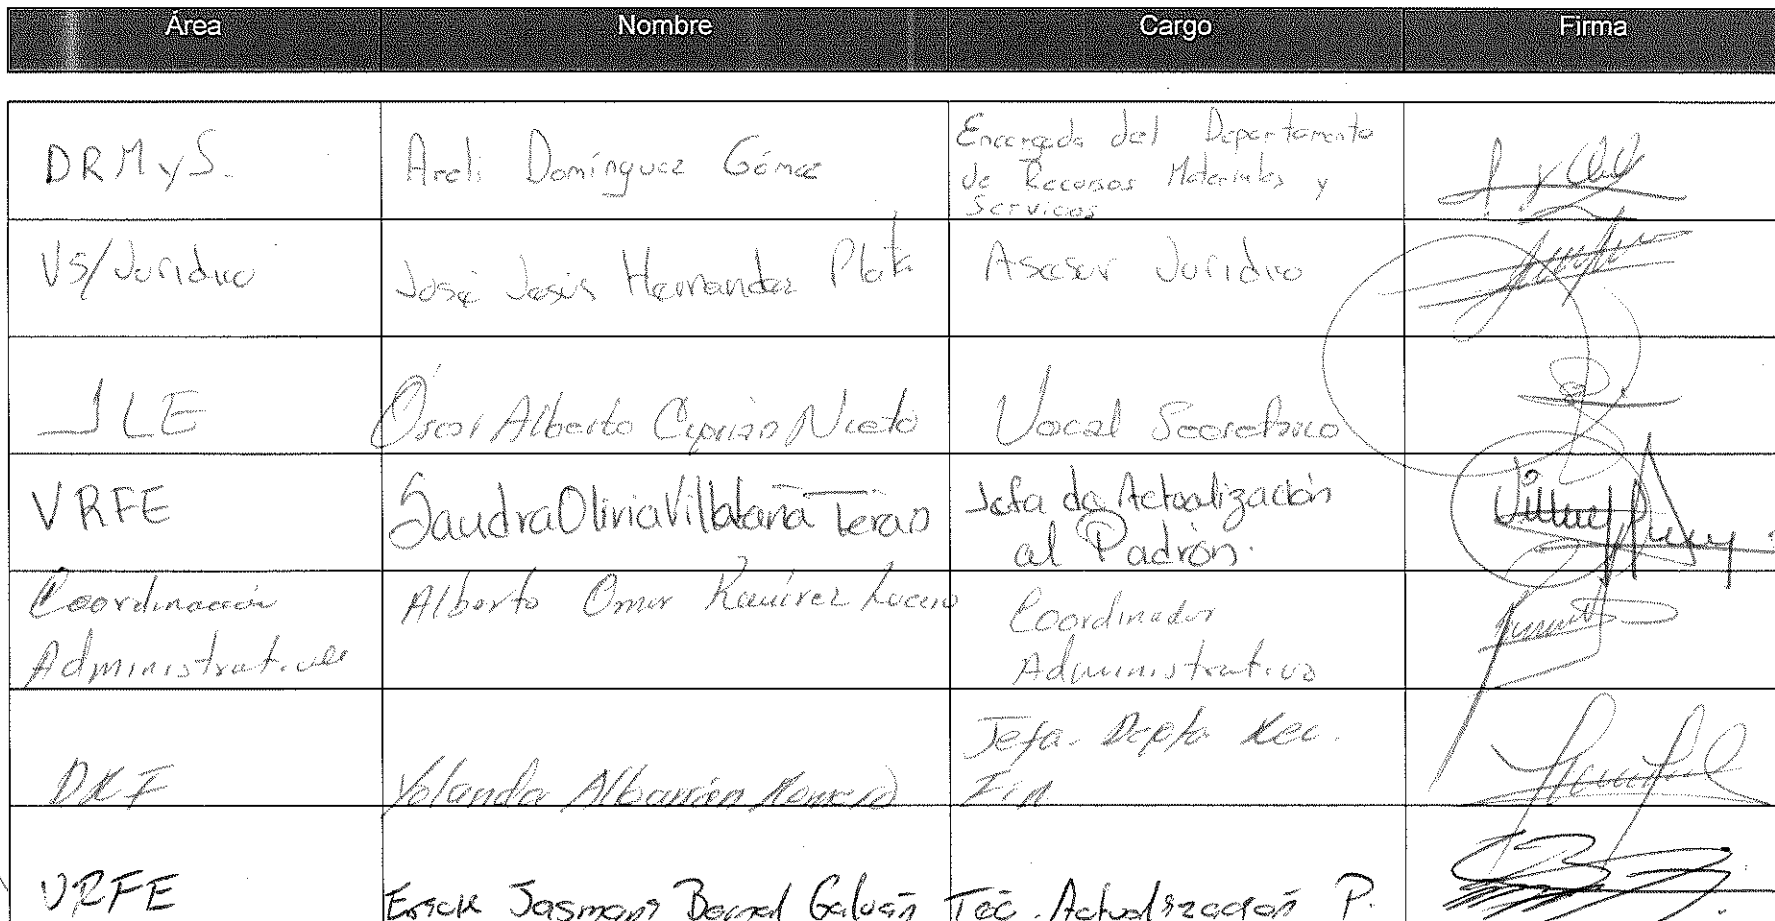 Área Nombre Cargo Firma
DRMyS. Areli Domínguez Gómez Encargada del Departamento
de Recursos Materiales y
Servicios
VS/Jurídico José Jesús Hernández Plata Asesor Jurídico
JLE Óscar Alberto Ciprián Nieto Vocal Secretario
VRFE Sandra Olivia Villafaña Terán Jefa de Actualización
al Padrón.
Coordinación Alberto Omar Ramírez Lucero Coordinador
Administrativa Administrativo
Jefa. Depto Rec.
DRF Yolanda Albarrán Romero Fin
VRFE Erick Bernal Galván Téc. Actualización P.